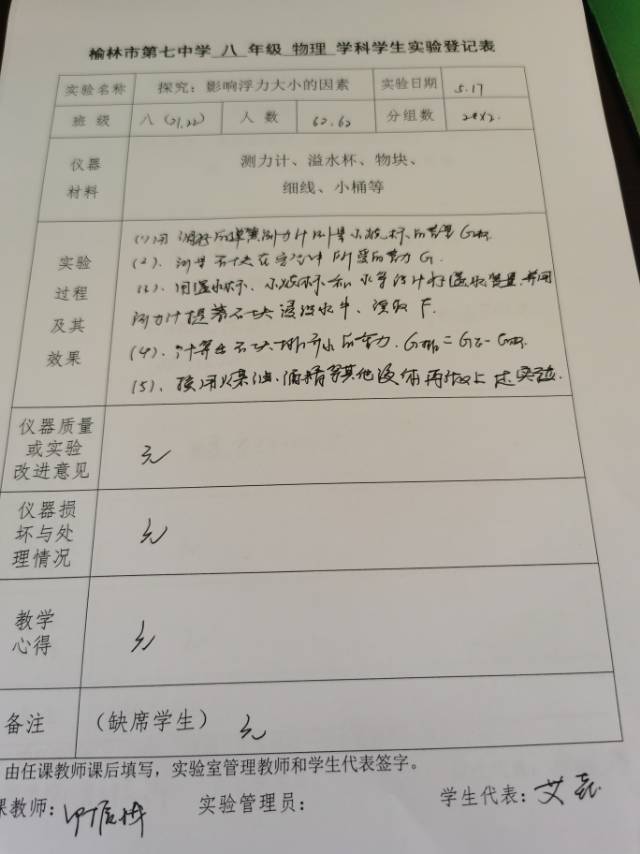 榆林市第七中学 八 年级 物理 学科学生实验登记表
实验名称 探究：影响浮力大小的因素 实验日期 5.17
班 级 八（21,22） 人 数 62.62 分组数
仪器 测力计、溢水杯、物块、
材料 细线、小桶等
(1)用调好的弹簧测力计测量小烧杯的重量G杯
实验 (2)、测量石块在空气中所受的重力G.
过程 (3)、用溢水杯、小烧杯和水等设计好溢水装置,并用
及其 测力计提着石块浸没水中、读取F.
效果 (4)、计算出石块排开水的重力.G排=G总-G杯.
(5)、换用煤油、酒精等其他液体再做上述实验.
仪器质量
或实验
改进意见 无
仪器损
坏与处 无
理情况
教学
心得 无
备注 （缺席学生） 无
由任课教师课后填写，实验室管理教师和学生代表签字。
课教师： 实验管理员： 学生代表：艾